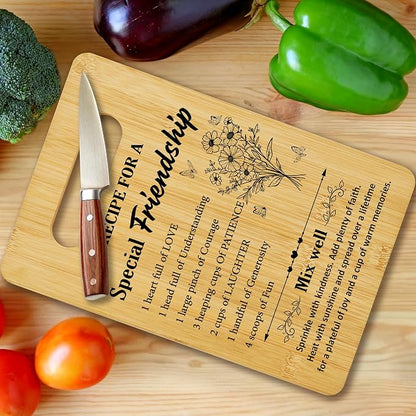 RECIPE FOR A
Special Friendship
1 heart full of LOVE
1 head full of Understanding
1 large pinch of Courage
3 heaping cups of PATIENCE
2 cups of LAUGHTER
1 handful of Generosity
4 scoops of Fun
Mix well
Sprinkle with kindness. Add plenty of faith.
Heat with sunshine and spread over a lifetime
for a plateful of joy and a cup of warm memories.